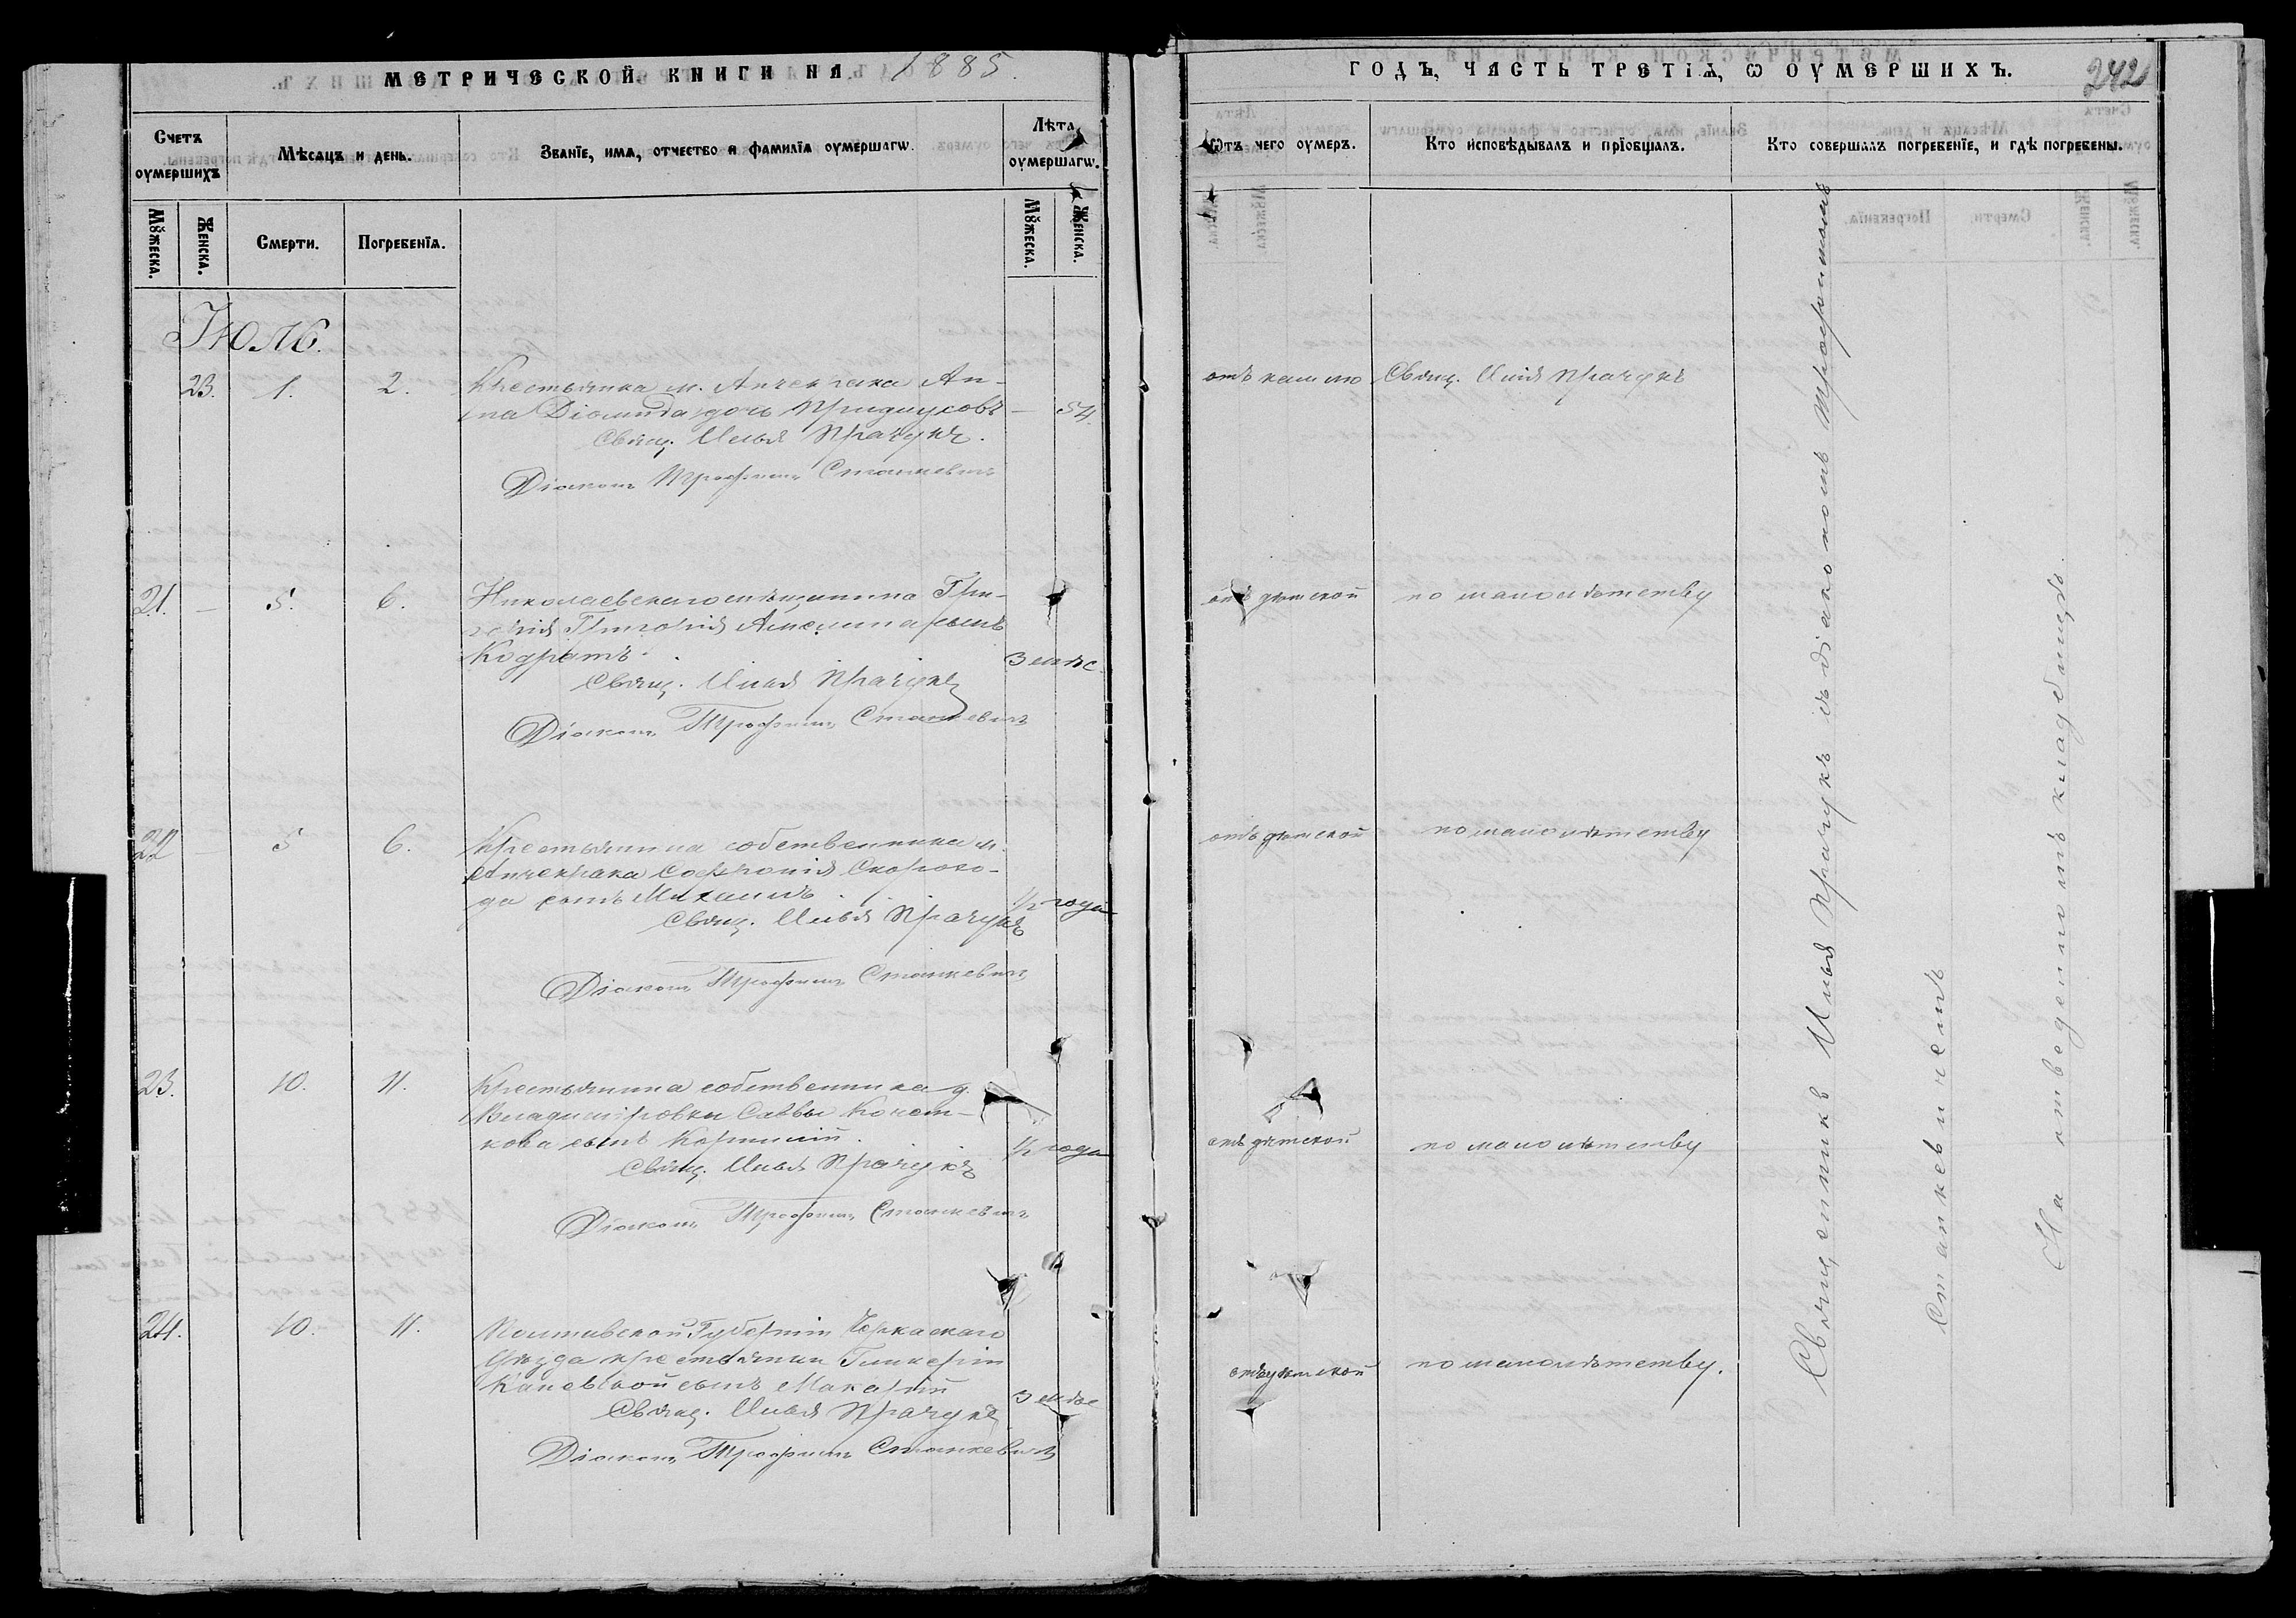 МЕТРИЧЕСКОЙ КНИГИ НА 1885.
Счетъ оумершихъ
Мѣсяцъ и день.
Званїе, имя, отчество и фамилїа оумершагѡ.
Лѣта оумершагѡ.
Мꙋжеска.
Женска.
Смерти.
Погребенїѧ.
Мꙋжеска.
Женска.
Іюль.
23. 1. 2. Крестьянка м. Анчекрака Ан-
на Діомида дочь — 54.
Свящ. Илья Прачукъ.
Діаконъ Трофимъ Станкевичъ
21. — 5. 6. Николаевскаго мѣщанина Гри-
горія Григорія сынъ
Кодратъ. 3 мѣс.
Свящ. Илья Прачукъ
Діаконъ Трофимъ Станкевичъ
22 — 5 6. Крестьянина собственника м.
Анчекрака Софронія Скорохо-
да сынъ Михаилъ. 1/2 года
Свящ. Илья Прачукъ
Діаконъ Трофимъ Станкевичъ
23. 10. 11. Крестьянина собственника д.
Владиміровки Саввы Кочет-
кова сынъ Корнилій. 1/2 года
Свящ. Илья Прачукъ
Діаконъ Трофимъ Станкевичъ
24. 10. 11. Полтавской Губерніи Черкаскаго
Уѣзда крестьянки Гликеріи
Каневской сынъ Макарій 3 мѣс
Свящ. Илья Прачукъ
Діаконъ Трофимъ Станкевичъ
ГОДЪ, ЧАСТЬ ТРЕТІѦ, Ѡ ОУМЕРШИХЪ.
242
Ѿтъ чего оумеръ.
Кто исповѣдывалъ и прїобщалъ.
Кто совершалъ погребенїе, и гдѣ погребены.
отъ кашлю Свящ. Илія Прачукъ
отъ дѣтской по малолѣтству
отъ дѣтской по малолѣтству
отъ дѣтской по малолѣтству
отъ дѣтской по малолѣтству.
Священникъ Илья Прачукъ съ діакономъ Трофимомъ
Станкевичемъ
На отведенномъ кладбищѣ.